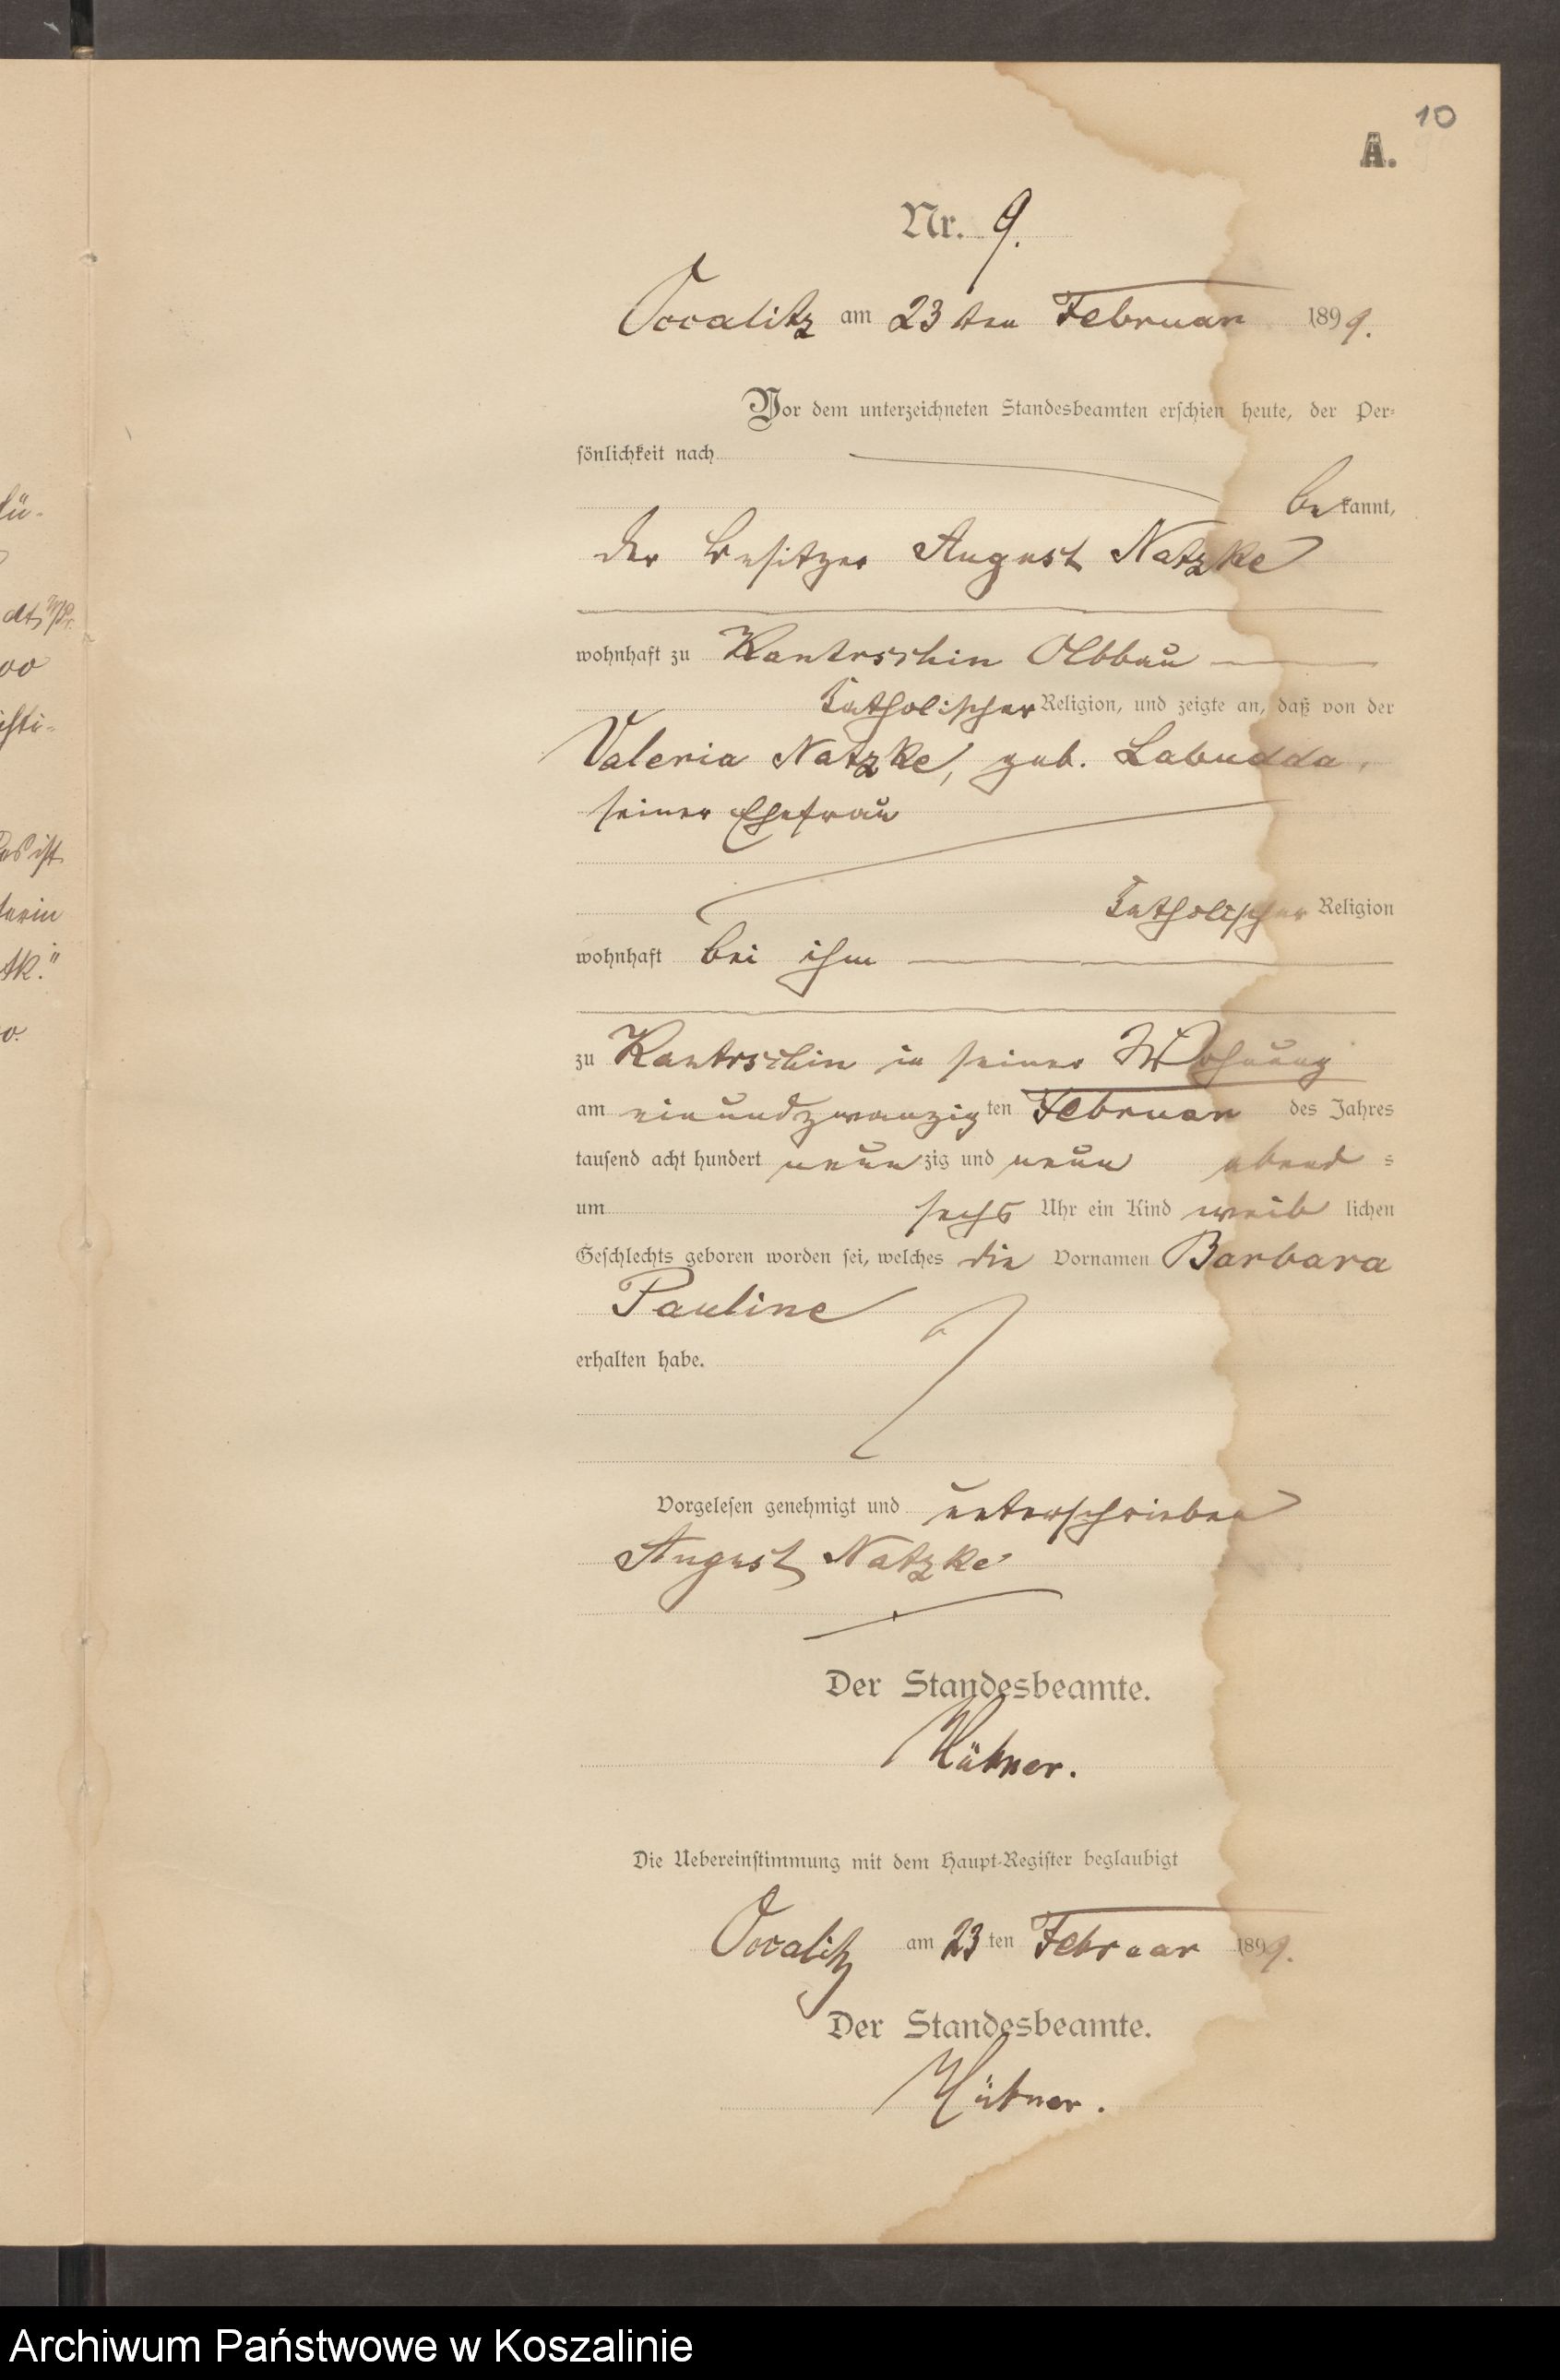 10
A.
Nr. 9.
Occalitz am 23 ten Februar 1899.
Vor dem unterzeichneten Standesbeamten erschien heute, der Per-
sönlichkeit nach
bekannt,
der Besitzer August Natzke
wohnhaft zu Kantrschin Abbau
katholischer Religion, und zeigte an, daß von der
Valeria Natzke, geb. Labudda,
seiner Ehefrau
katholischer Religion
wohnhaft bei ihm
zu Kantrschin in seiner Wohnung
am einundzwanzig ten Februar des Jahres
tausend acht hundert neunzig und neun abend s
um sechs Uhr ein Kind weib lichen
Geschlechts geboren worden sei, welches die Vornamen Barbara
Pauline
erhalten habe.
Vorgelesen genehmigt und unterschrieben
August Natzke
Der Standesbeamte.
Hübner.
Die Uebereinstimmung mit dem Haupt-Register beglaubigt
Occalitz am 23 ten Februar 1899.
Der Standesbeamte.
Hübner.
Archiwum Państwowe w Koszalinie